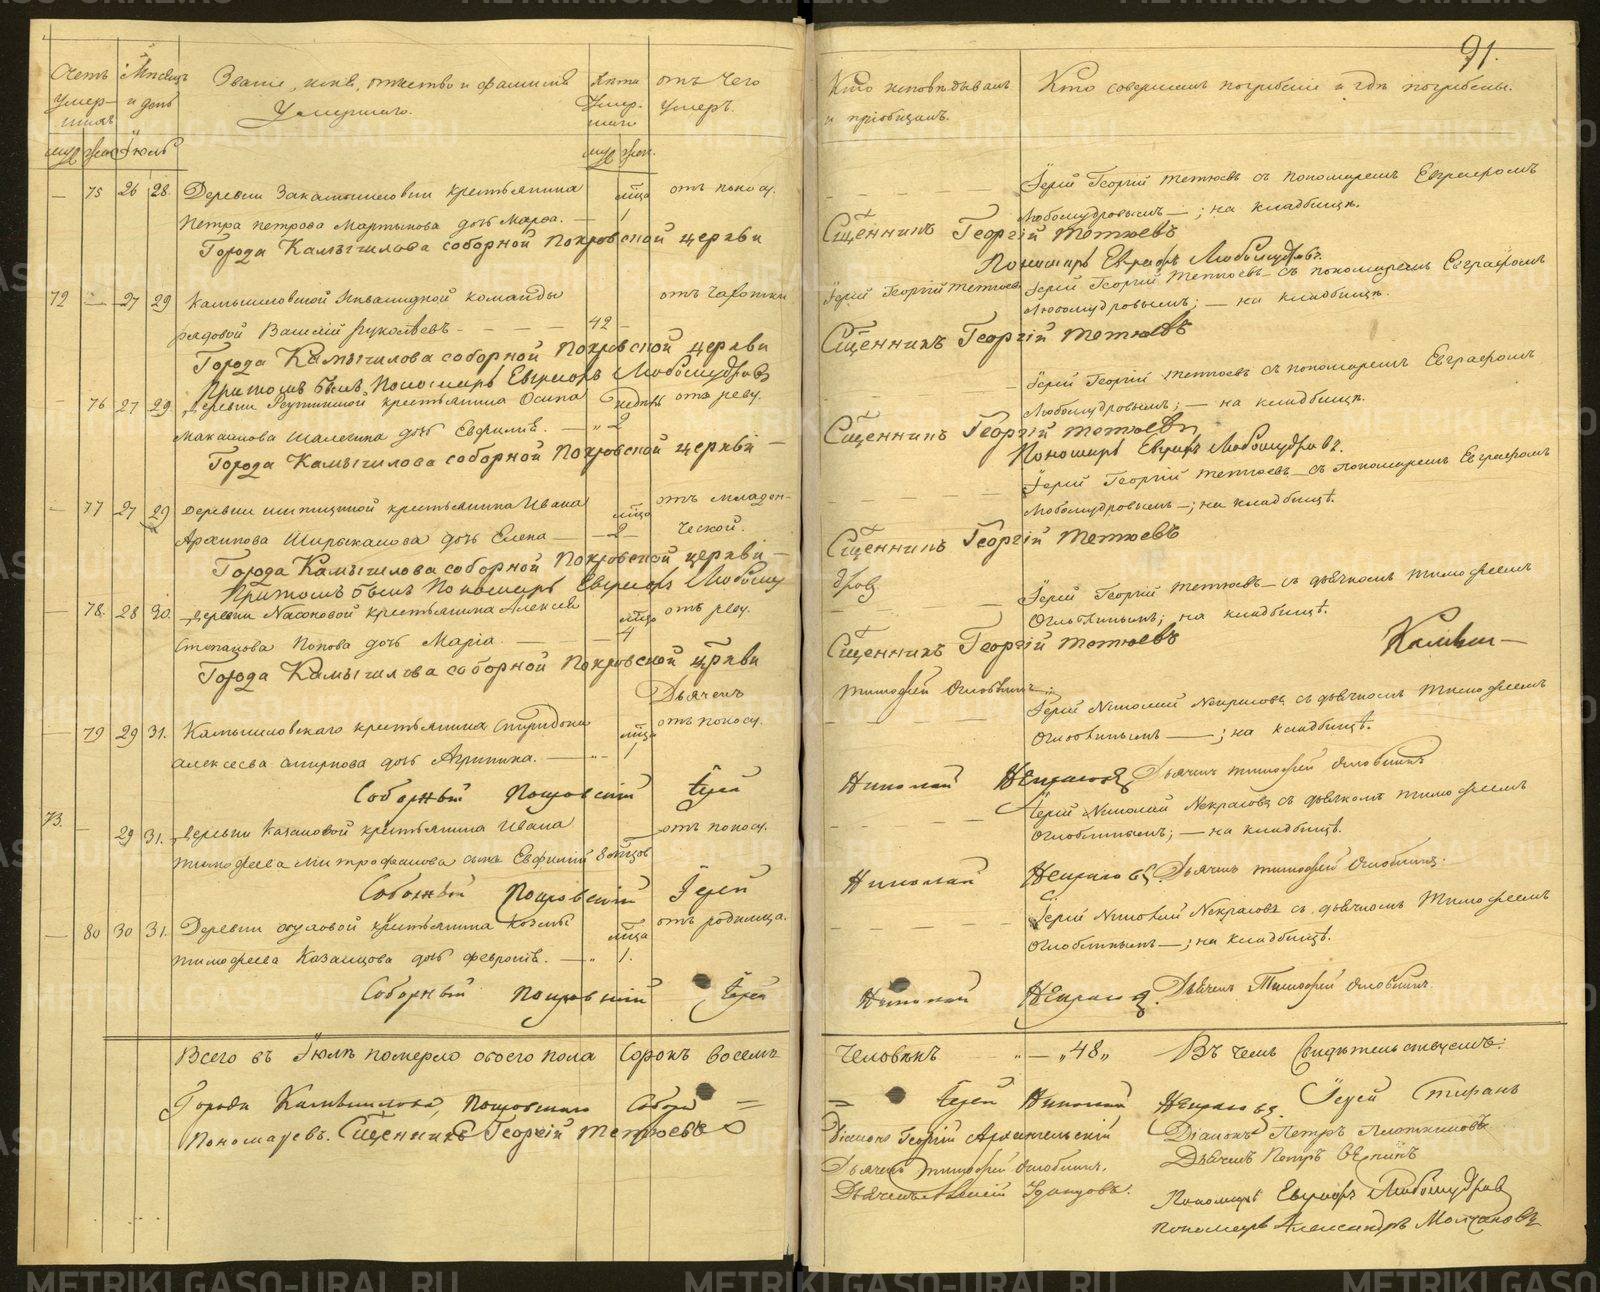 91.
Счетъ умер-шихъ
Мѣсяцъ и день
Званіе, имя, отчество и фамилія Умершаго.
Лѣта Умер-шаго
отъ чего умеръ.
Кто исповѣдывалъ и пріобщалъ.
Кто совершалъ погребеніе и гдѣ погребены.
муж. жен. Іюль муж. жен.
— 75 26 28. Деревни крестьянина отъ поносу. Іерей Георгій Тетюевъ съ пономаремъ Евграфомъ
Петра Петрова Мартынова дочь Марѳа. — 1 Любомудровымъ —; на кладбищѣ.
Города Камышлова соборной Покровской церкви Сщенникъ Георгій Тетюевъ
Пономарь Евграфъ Любомудровъ.
72 — 27 29 Камышловской Инвалидной команды отъ чахотки Іерей Георгій Тетюевъ Іерей Георгій Тетюевъ съ пономаремъ Евграфомъ
рядовой Василій — 42 — Любомудровымъ; — на кладбищѣ.
Города Камышлова соборной Покровской церкви Сщенникъ Георгій Тетюевъ
Притомъ былъ Пономарь Евграфъ Любомудровъ
— 76 27 29. Деревни крестьянина Осипа недѣль отъ реву. Іерей Георгій Тетюевъ съ пономаремъ Евграфомъ
дочь — " 2 Любомудровымъ; — на кладбищѣ.
Города Камышлова соборной Покровской церкви — Сщенникъ Георгій Тетюевъ
Пономарь Евграфъ Любомудровъ.
— 77 27 29 Деревни крестьянина Ивана мѣсяца отъ младен- Іерей Георгій Тетюевъ съ пономаремъ Евграфомъ
Архипова дочь Елена — — 2 — ческой. Любомудровымъ —; на кладбищѣ.
Города Камышлова соборной Покровской церкви — Сщенникъ Георгій Тетюевъ
Притомъ былъ Пономарь Евграфъ Любому дровъ
— 78. 28 30. Деревни Насоновой крестьянина Алексѣя отъ реву. Іерей Георгій Тетюевъ — съ дьячкомъ Тимофеемъ
Степанова Попова дочь Марія. — — 4 Оглоблинымъ; на кладбищѣ.
Города Камышлова соборной Покровской церкви Сщенникъ Георгій Тетюевъ
Дьячекъ Тимофей Оглоблинъ.
— 79 29 31. Камышловскаго крестьянина Спиридона отъ поносу. Іерей Николай Некрасовъ съ дьячкомъ Тимофеемъ
Алексѣева Смирнова дочь Агрипина. — " 1 Оглоблинымъ —; на кладбищѣ.
Соборный Покровскій Іерей Николай Некрасовъ Дьячекъ Тимофей Оглоблинъ
73. — 29 31. Деревни Казаковой крестьянина Ивана отъ поносу. Іерей Николай Некрасовъ съ дьячкомъ Тимофеемъ
Тимофеева Митрофанова сынъ Евфимій 8 Оглоблинымъ; — на кладбищѣ.
Соборный Покровскій Іерей Николай Некрасовъ. Дьячекъ Тимофей Оглоблинъ.
— 80 30 31. Деревни крестьянина Козмы отъ родимца. Іерей Николай Некрасовъ съ дьячкомъ Тимофеемъ
Тимофеева Казанцова дочь — " 1. Оглоблинымъ —; на кладбищѣ.
Соборный Покровскій Іерей Николай Некрасовъ. Дьячекъ Тимофей Оглоблинъ.
Всего въ Іюлѣ померло обоего пола Сорокъ восемь человѣкъ " — "48" Въ чемъ Свидѣтельствуемъ:
Города Камышлова, Покровскаго Собора = = Іерей Николай Некрасовъ. Іерей Стефанъ
Пономаревъ. Сщенникъ Георгій Тетюевъ Діаконъ Георгій Архангельскій Діаконъ Петръ Плотниковъ
Дьячекъ Тимофей Оглоблинъ. Дьячекъ Петръ
Дьячекъ Удинцовъ. Пономарь Евграфъ Любомудровъ
Пономарь Александръ Молчановъ
METRIKI.GASO-URAL.RU